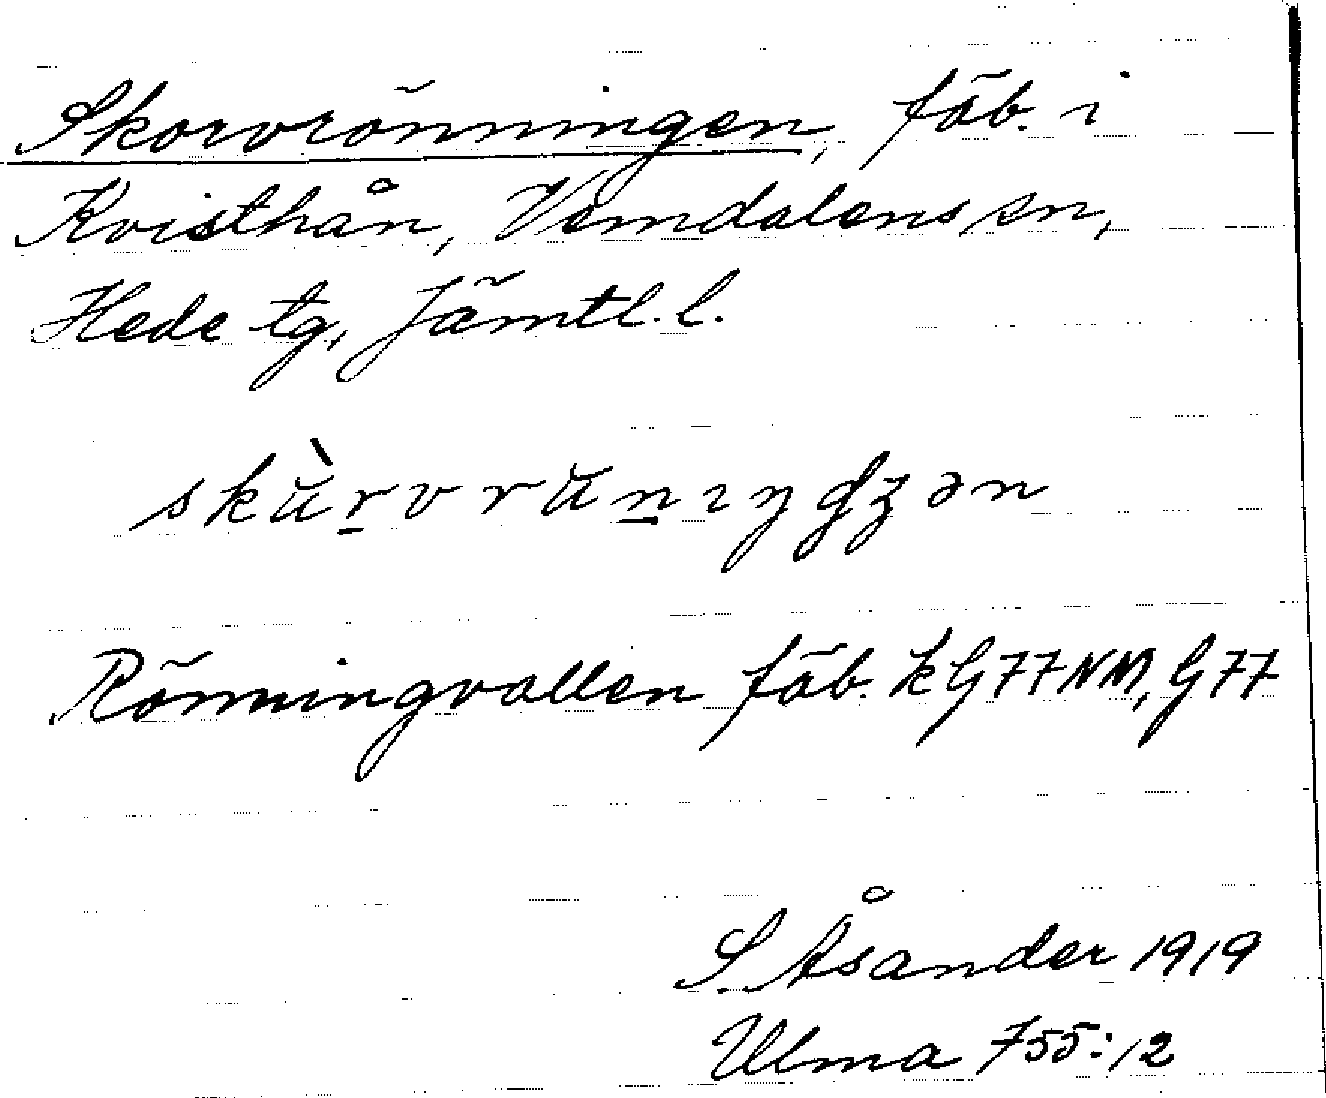 Skorvrönningen, fäb. i
Kvisthån, Vemdalens sn,
Hede tg, Jämtl. l.
skùrvrŭnıŋgʒən
Rönningvallen fäb. k G77NM, G77
S. Åsander 1919
Ulma 755:12